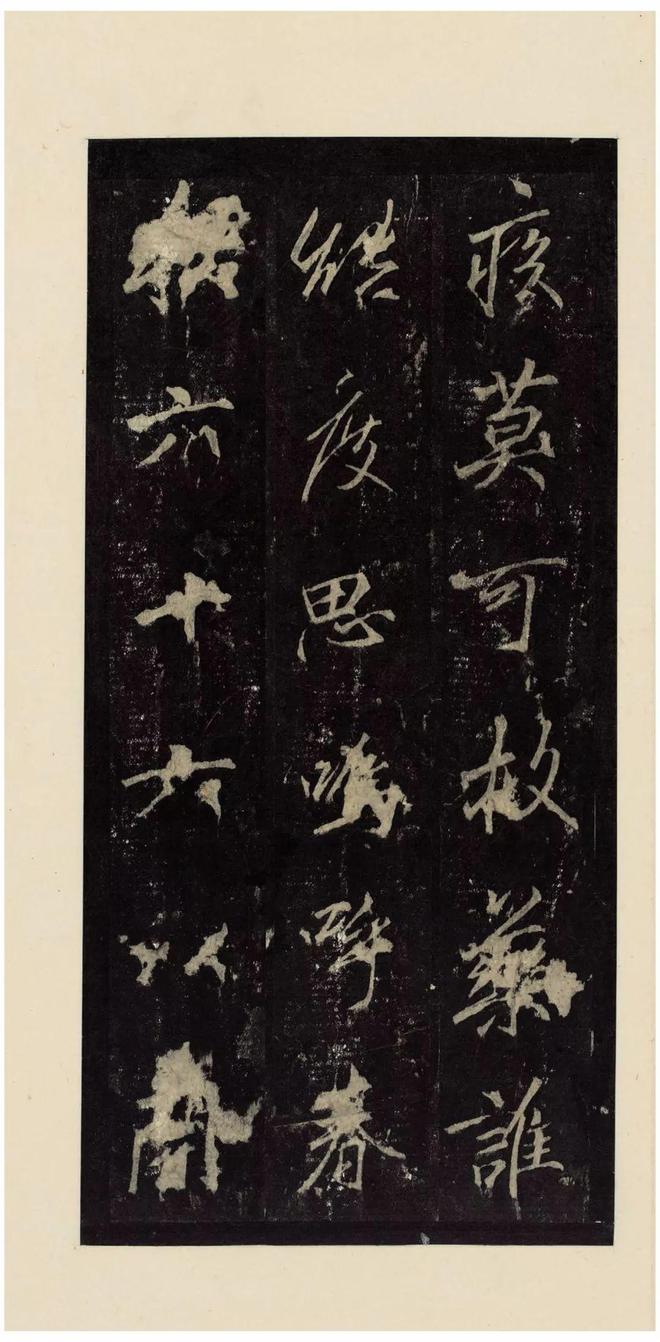 莫可救藥誰
能度思嗚呼春
秋六十六以開